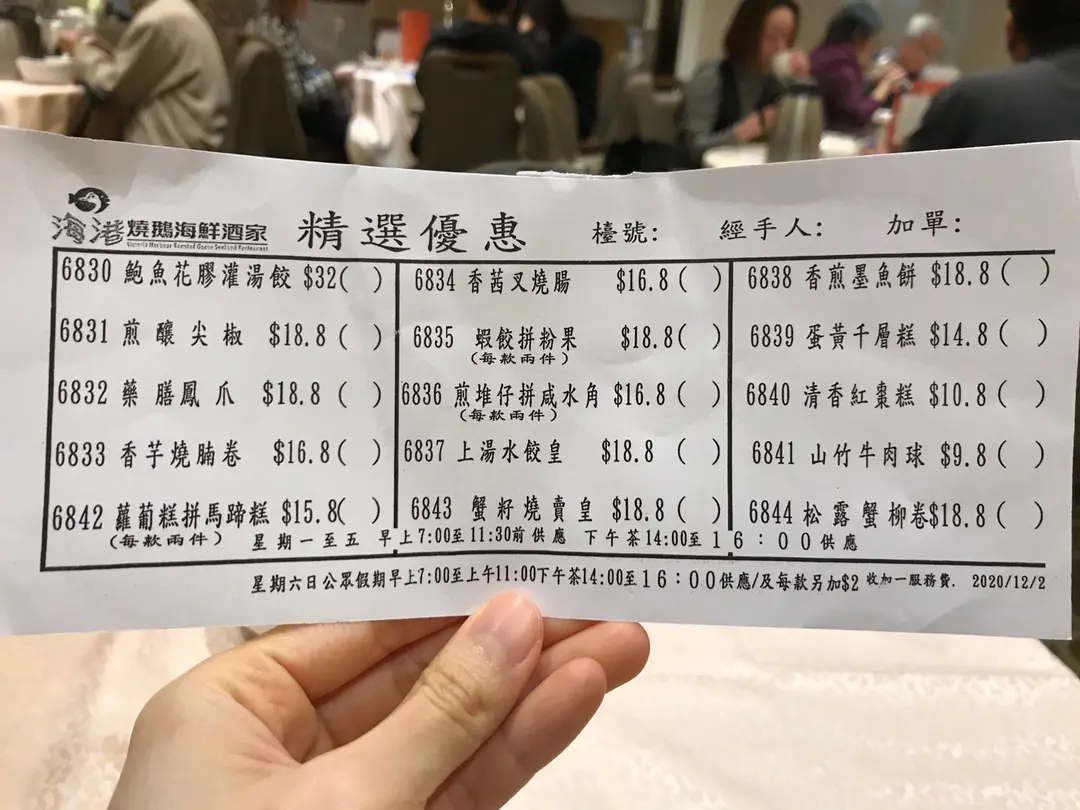 海港燒鵝海鮮酒家 精選優惠 檯號: 經手人: 加單:
Victoria Harbour Roasted Goose Seafood Restaurant
6830 鮑魚花膠灌湯餃 $32( )
6831 煎釀尖椒 $18.8( )
6832 藥膳鳳爪 $18.8( )
6833 香芋燒腩卷 $16.8( )
6842 蘿葡糕拼馬蹄糕 $15.8( )
(每款兩件)
6834 香茜叉燒腸 $16.8( )
6835 蝦餃拼粉果 $18.8( )
(每款兩件)
6836 煎堆仔拼咸水角 $16.8( )
(每款兩件)
6837 上湯水餃皇 $18.8( )
6843 蟹籽燒賣皇 $18.8( )
6838 香煎墨魚餅 $18.8( )
6839 蛋黃千層糕 $14.8( )
6840 清香紅棗糕 $10.8( )
6841 山竹牛肉球 $9.8( )
6844 松露蟹柳卷$18.8( )
星期一至五 早上7:00至11:30前供應 下午茶14:00至16:00供應
星期六日公眾假期早上7:00至上午11:00下午茶14:00至16:00供應/及每款另加$2 收加一服務費. 2020/12/2